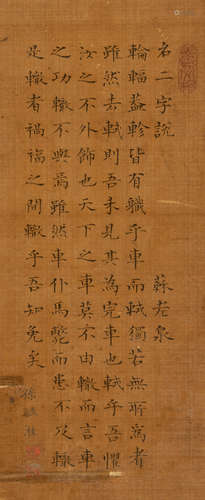 名二字說 蘇老泉
輪輻蓋軫皆有職乎車而軾獨若無所為者
雖然去軾則吾未見其為完車也軾乎吾懼
汝之不外飾也天下之車莫不由轍而言車
之功轍不與焉雖然車仆馬斃而患不及轍
是轍者禍福之間轍乎吾知免矣